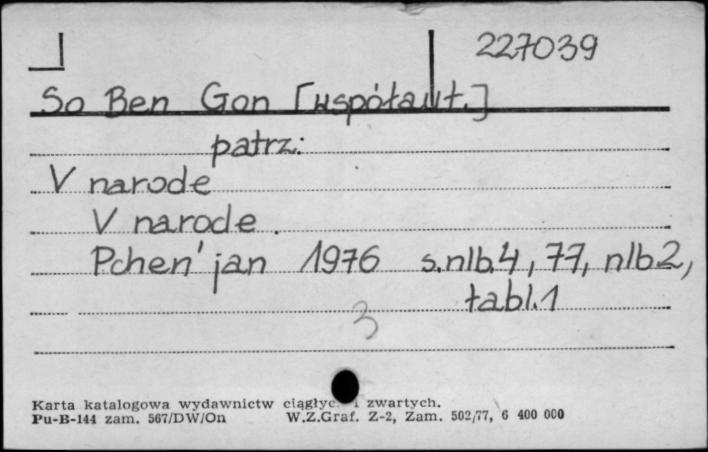 227039
So Ben Gon [współaut.]
patrz:
V narode
V narode.
Pchen'jan 1976 s.nlb.4, 77, nlb.2,
tabl.1
3
Karta katalogowa wydawnictw ciągłyc. i zwartych.
Pu-B-144 zam. 567/DW/On W.Z.Graf. Z-2, Zam. 502/77, 6 400 000